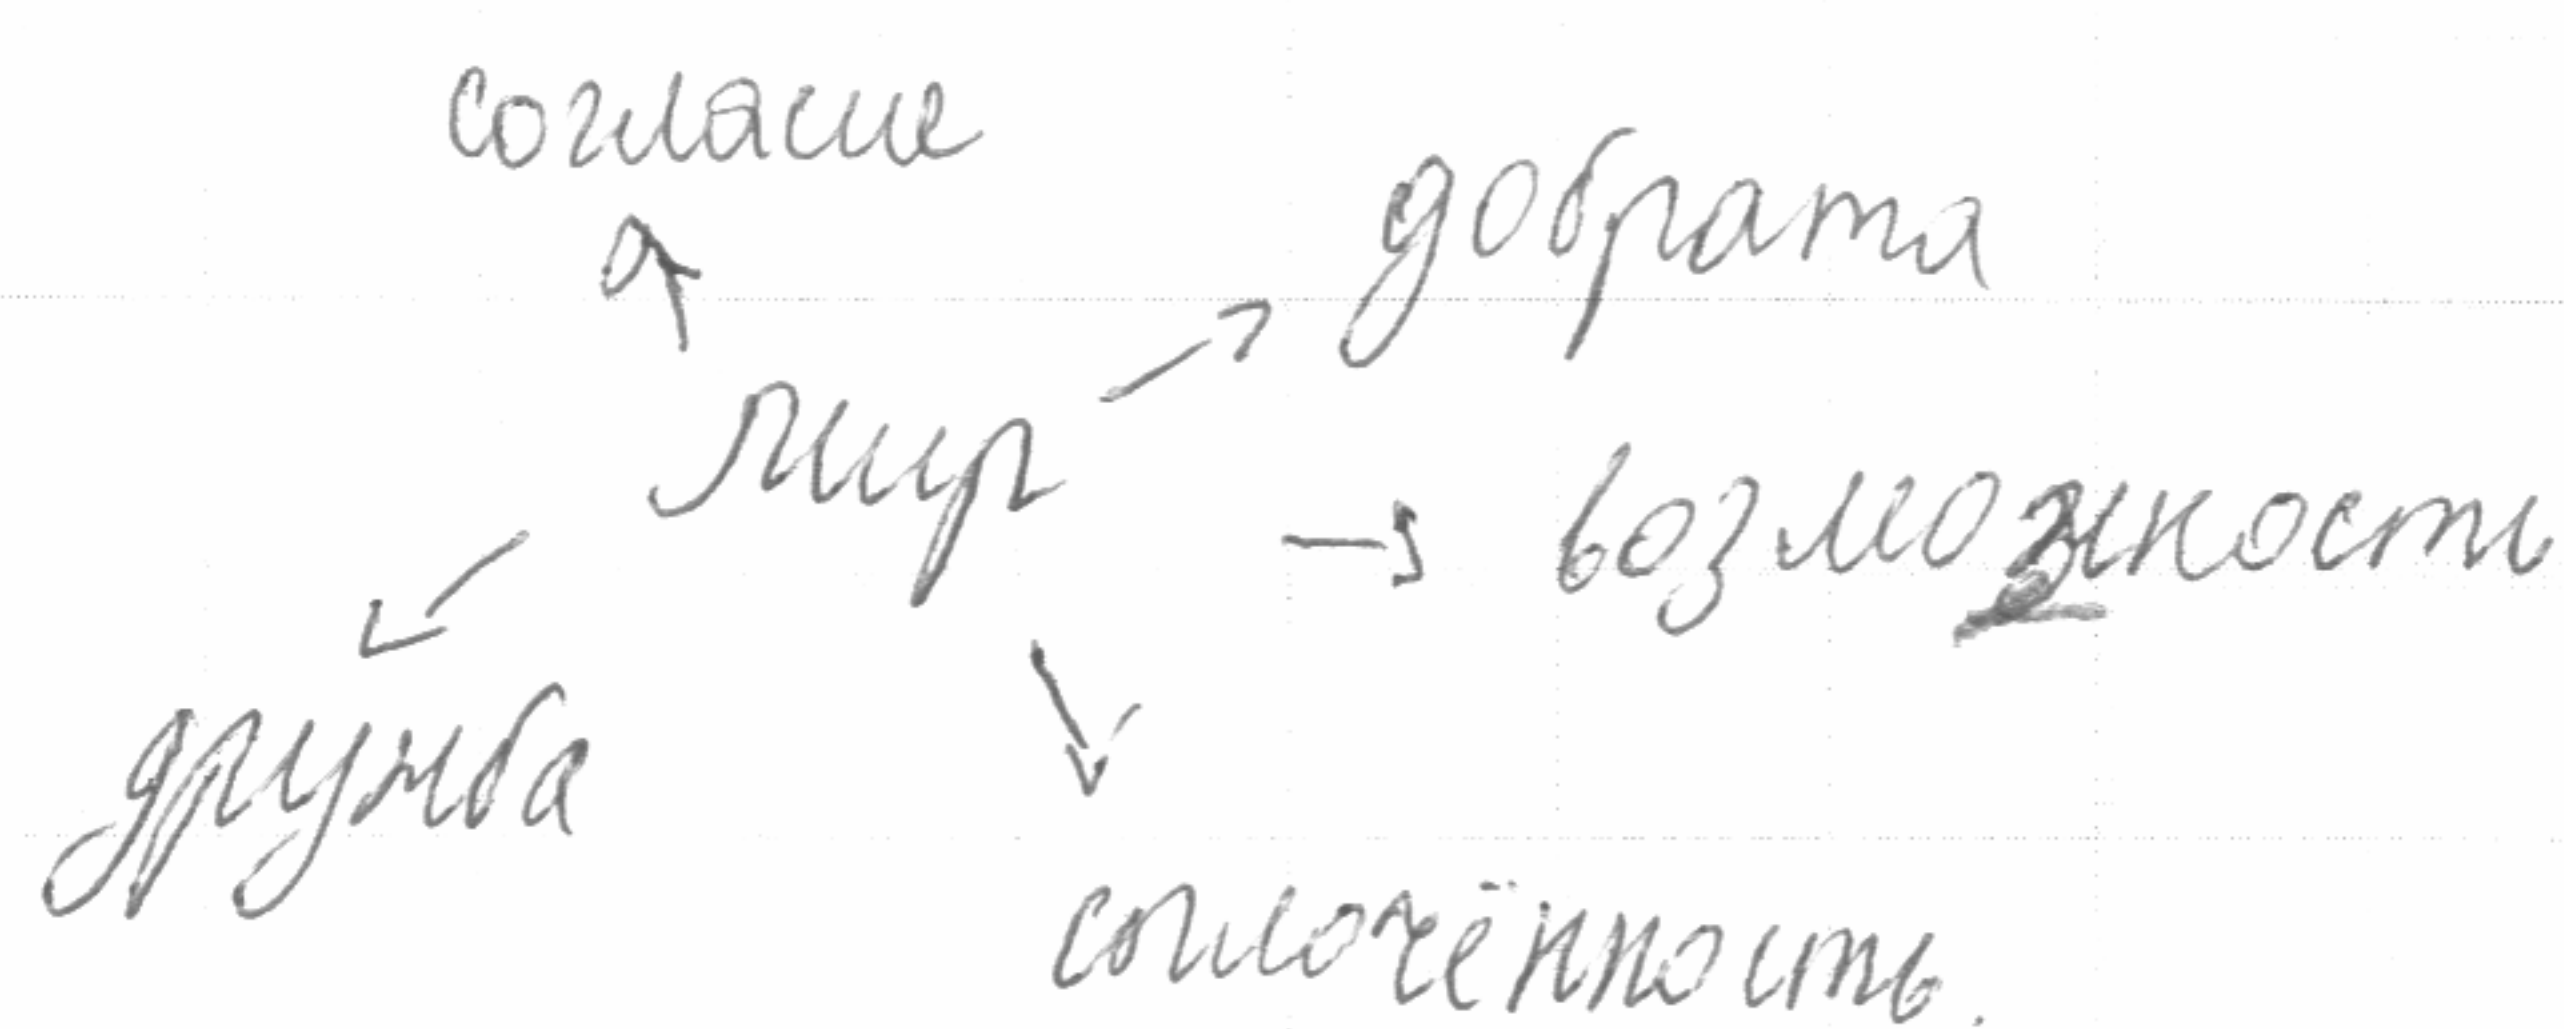 согласие
добрата
мир
возможность
дружба
сплочённость.